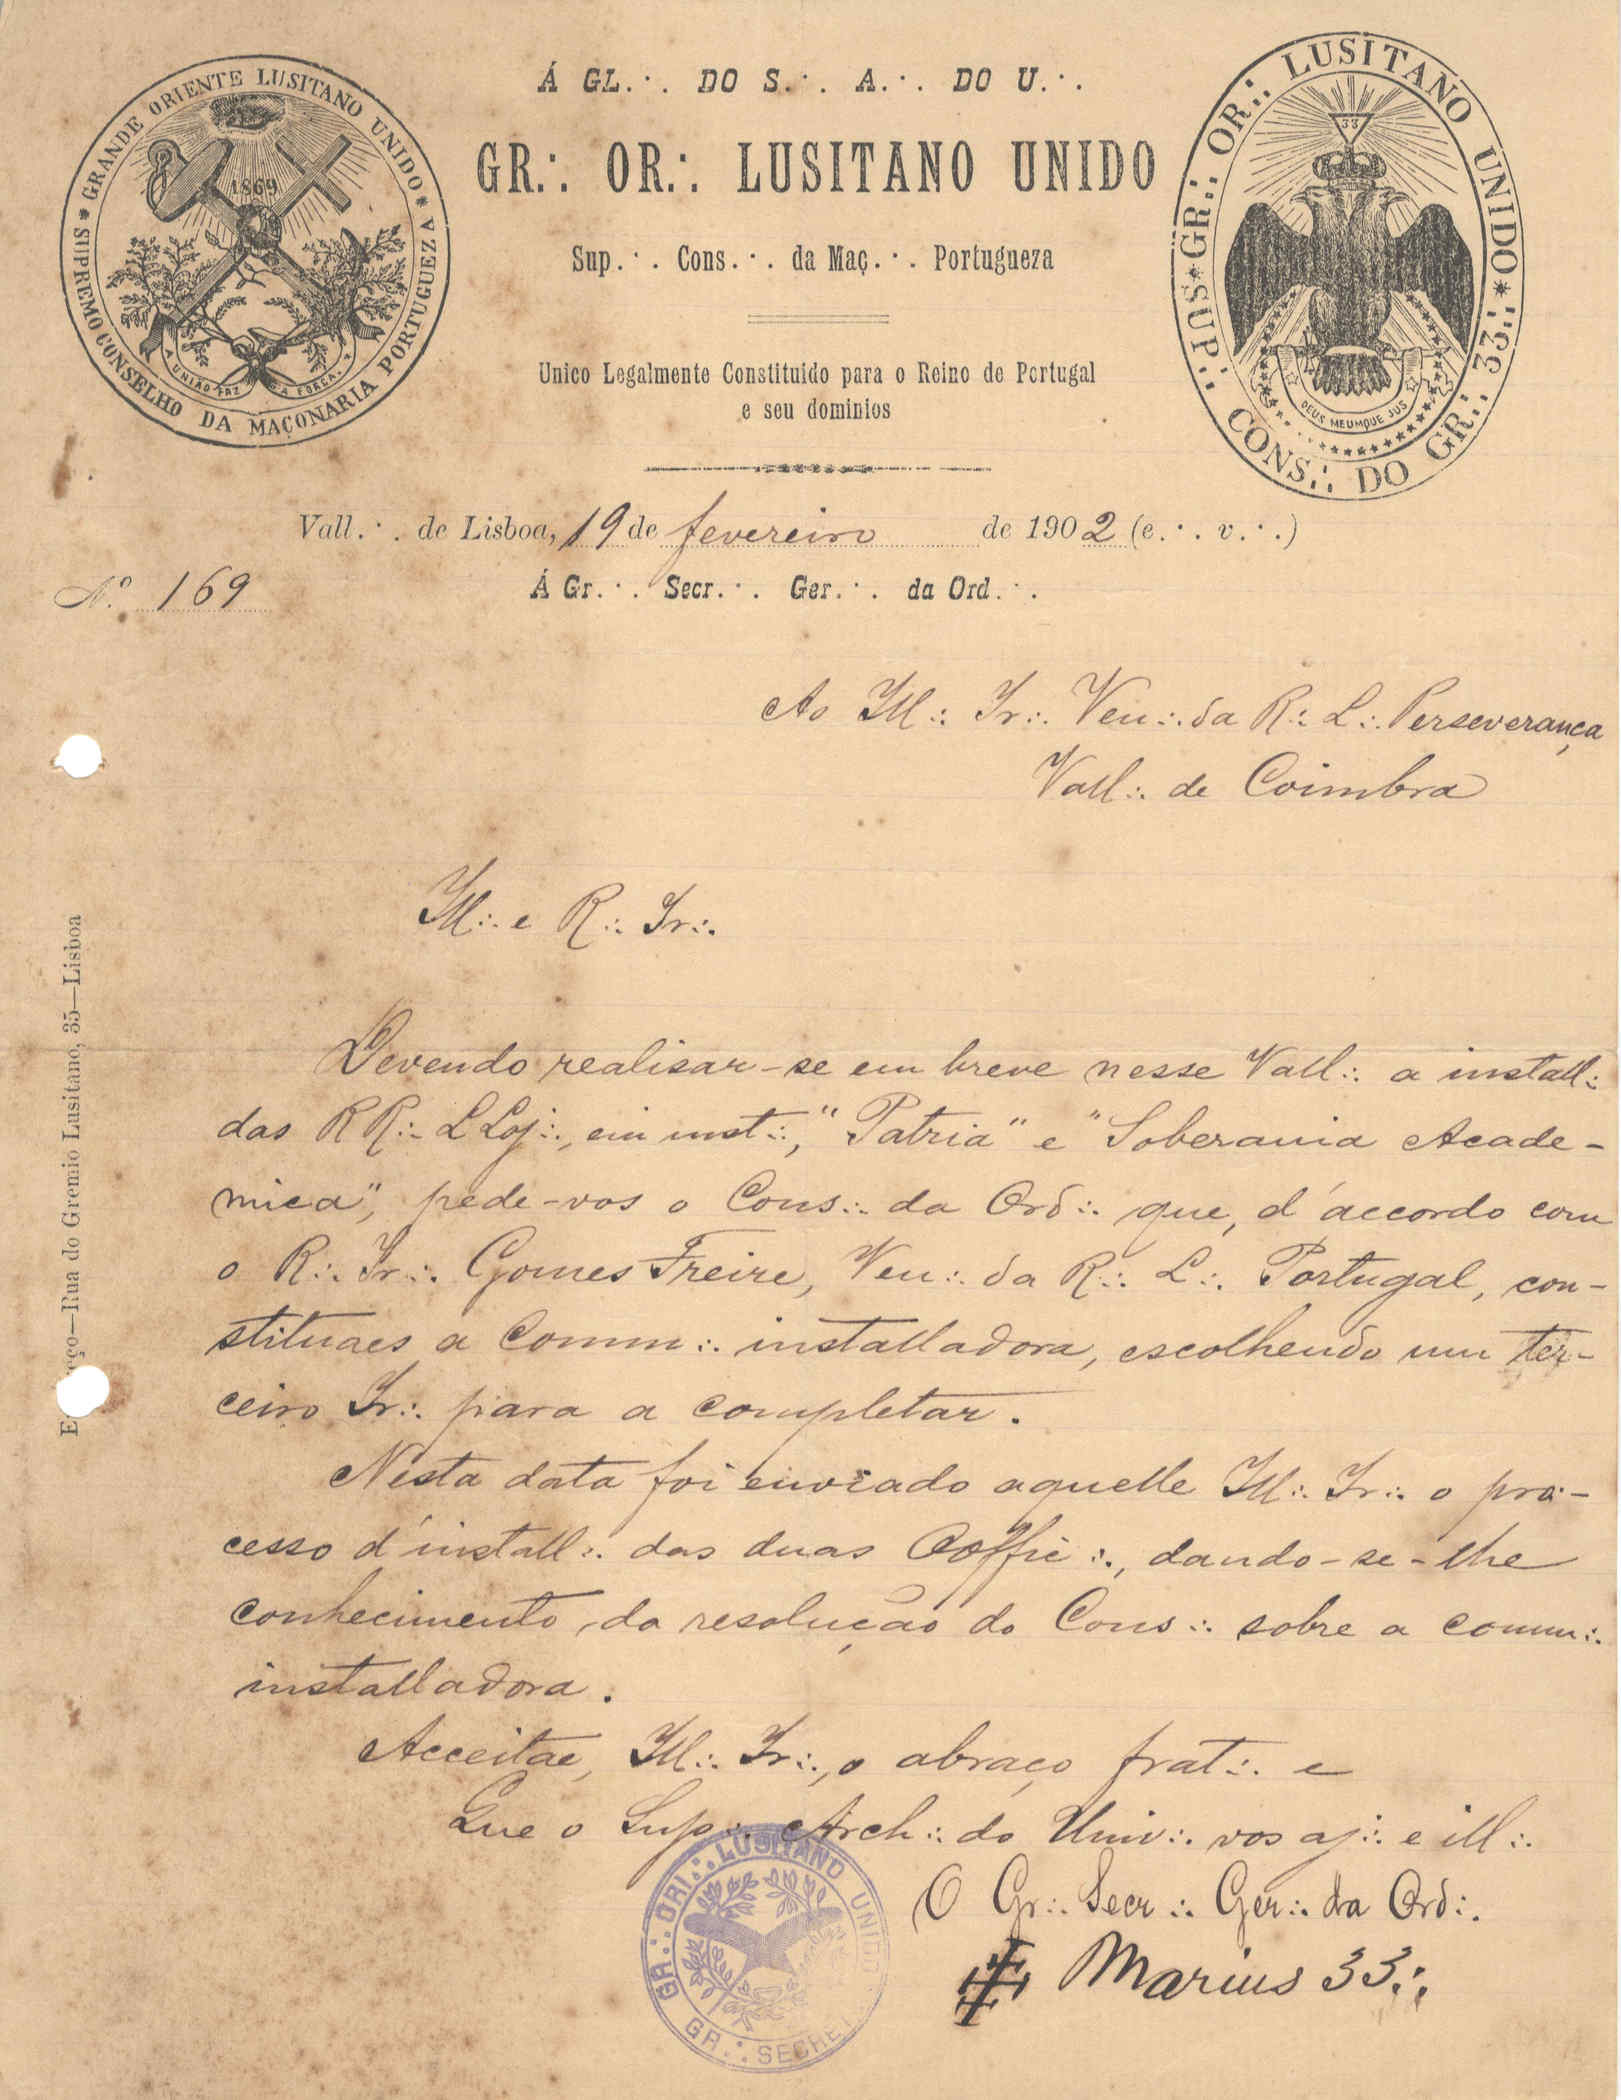 Á GL.·. DO S.·. A.·. DO U.·.
GR.·. OR.·. LUSITANO UNIDO
Sup.·. Cons.·. da Maç.·. Portugueza
Unico Legalmente Constituido para o Reino de Portugal
e seu dominios
* GRANDE ORIENTE LUSITANO UNIDO * SUPREMO CONSELHO DA MAÇONARIA PORTUGUEZA
1869
A UNIÃO FAZ A FORÇA
GR.·. OR.·. LUSITANO UNIDO * SUP.·. CONS.·. DO GR.·. 33.·. *
33
DEUS MEUMQUE JUS
Vall.·. de Lisboa, 19 de fevereiro de 1902 (e.·. v.·.)
N.º 169
Á Gr.·. Secr.·. Ger.·. da Ord.·.
Ao Ill.·. Ir.·. Ven.·. da R.·. L.·. Perseverança
Vall.·. de Coimbra
Ill.·. e R.·. Ir.·.
Devendo realisar-se em breve nesse Vall.·. a install.·.
das RR.·. LLoj.·., em inst.·., "Patria" e "Soberania Acade-
mica", pede-vos o Cons.·. da Ord.·. que, d'accordo com
o R.·. Ir.·. Gomes Freire, Ven.·. da R.·. L.·. Portugal, con-
stituaes a Comm.·. installadora, escolhendo um ter-
ceiro Ir.·. para a completar.
Nesta data foi enviado aquelle Ill.·. Ir.·. o pro-
cesso d'install.·. das duas Ooffic.·., dando-se-lhe
conhecimento da resolução do Cons.·. sobre a comm.·.
installadora.
Acceitae, Ill.·. Ir.·., o abraço frat.·. e
Que o Sup.·. Arch.·. do Univ.·. vos aj.·. e ill.·.
O Gr.·. Secr.·. Ger.·. da Ord.·.
Marius 33.·.
GR.·. ORI.·. LUSITANO UNIDO
GR.·. SECRET
Rua do Gremio Lusitano, 35—Lisboa